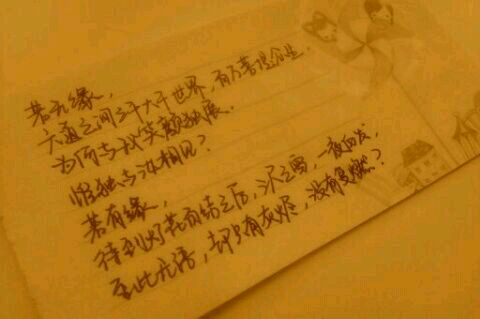 若无缘，
六道之间三千大千世界，百万菩提众生，
为何与我笑颜独展，
唯独与汝相见？
若有缘，
待到灯花百结之后，三尺之雪，一夜白发，
至此无语，却只有灰烬，没有复燃？